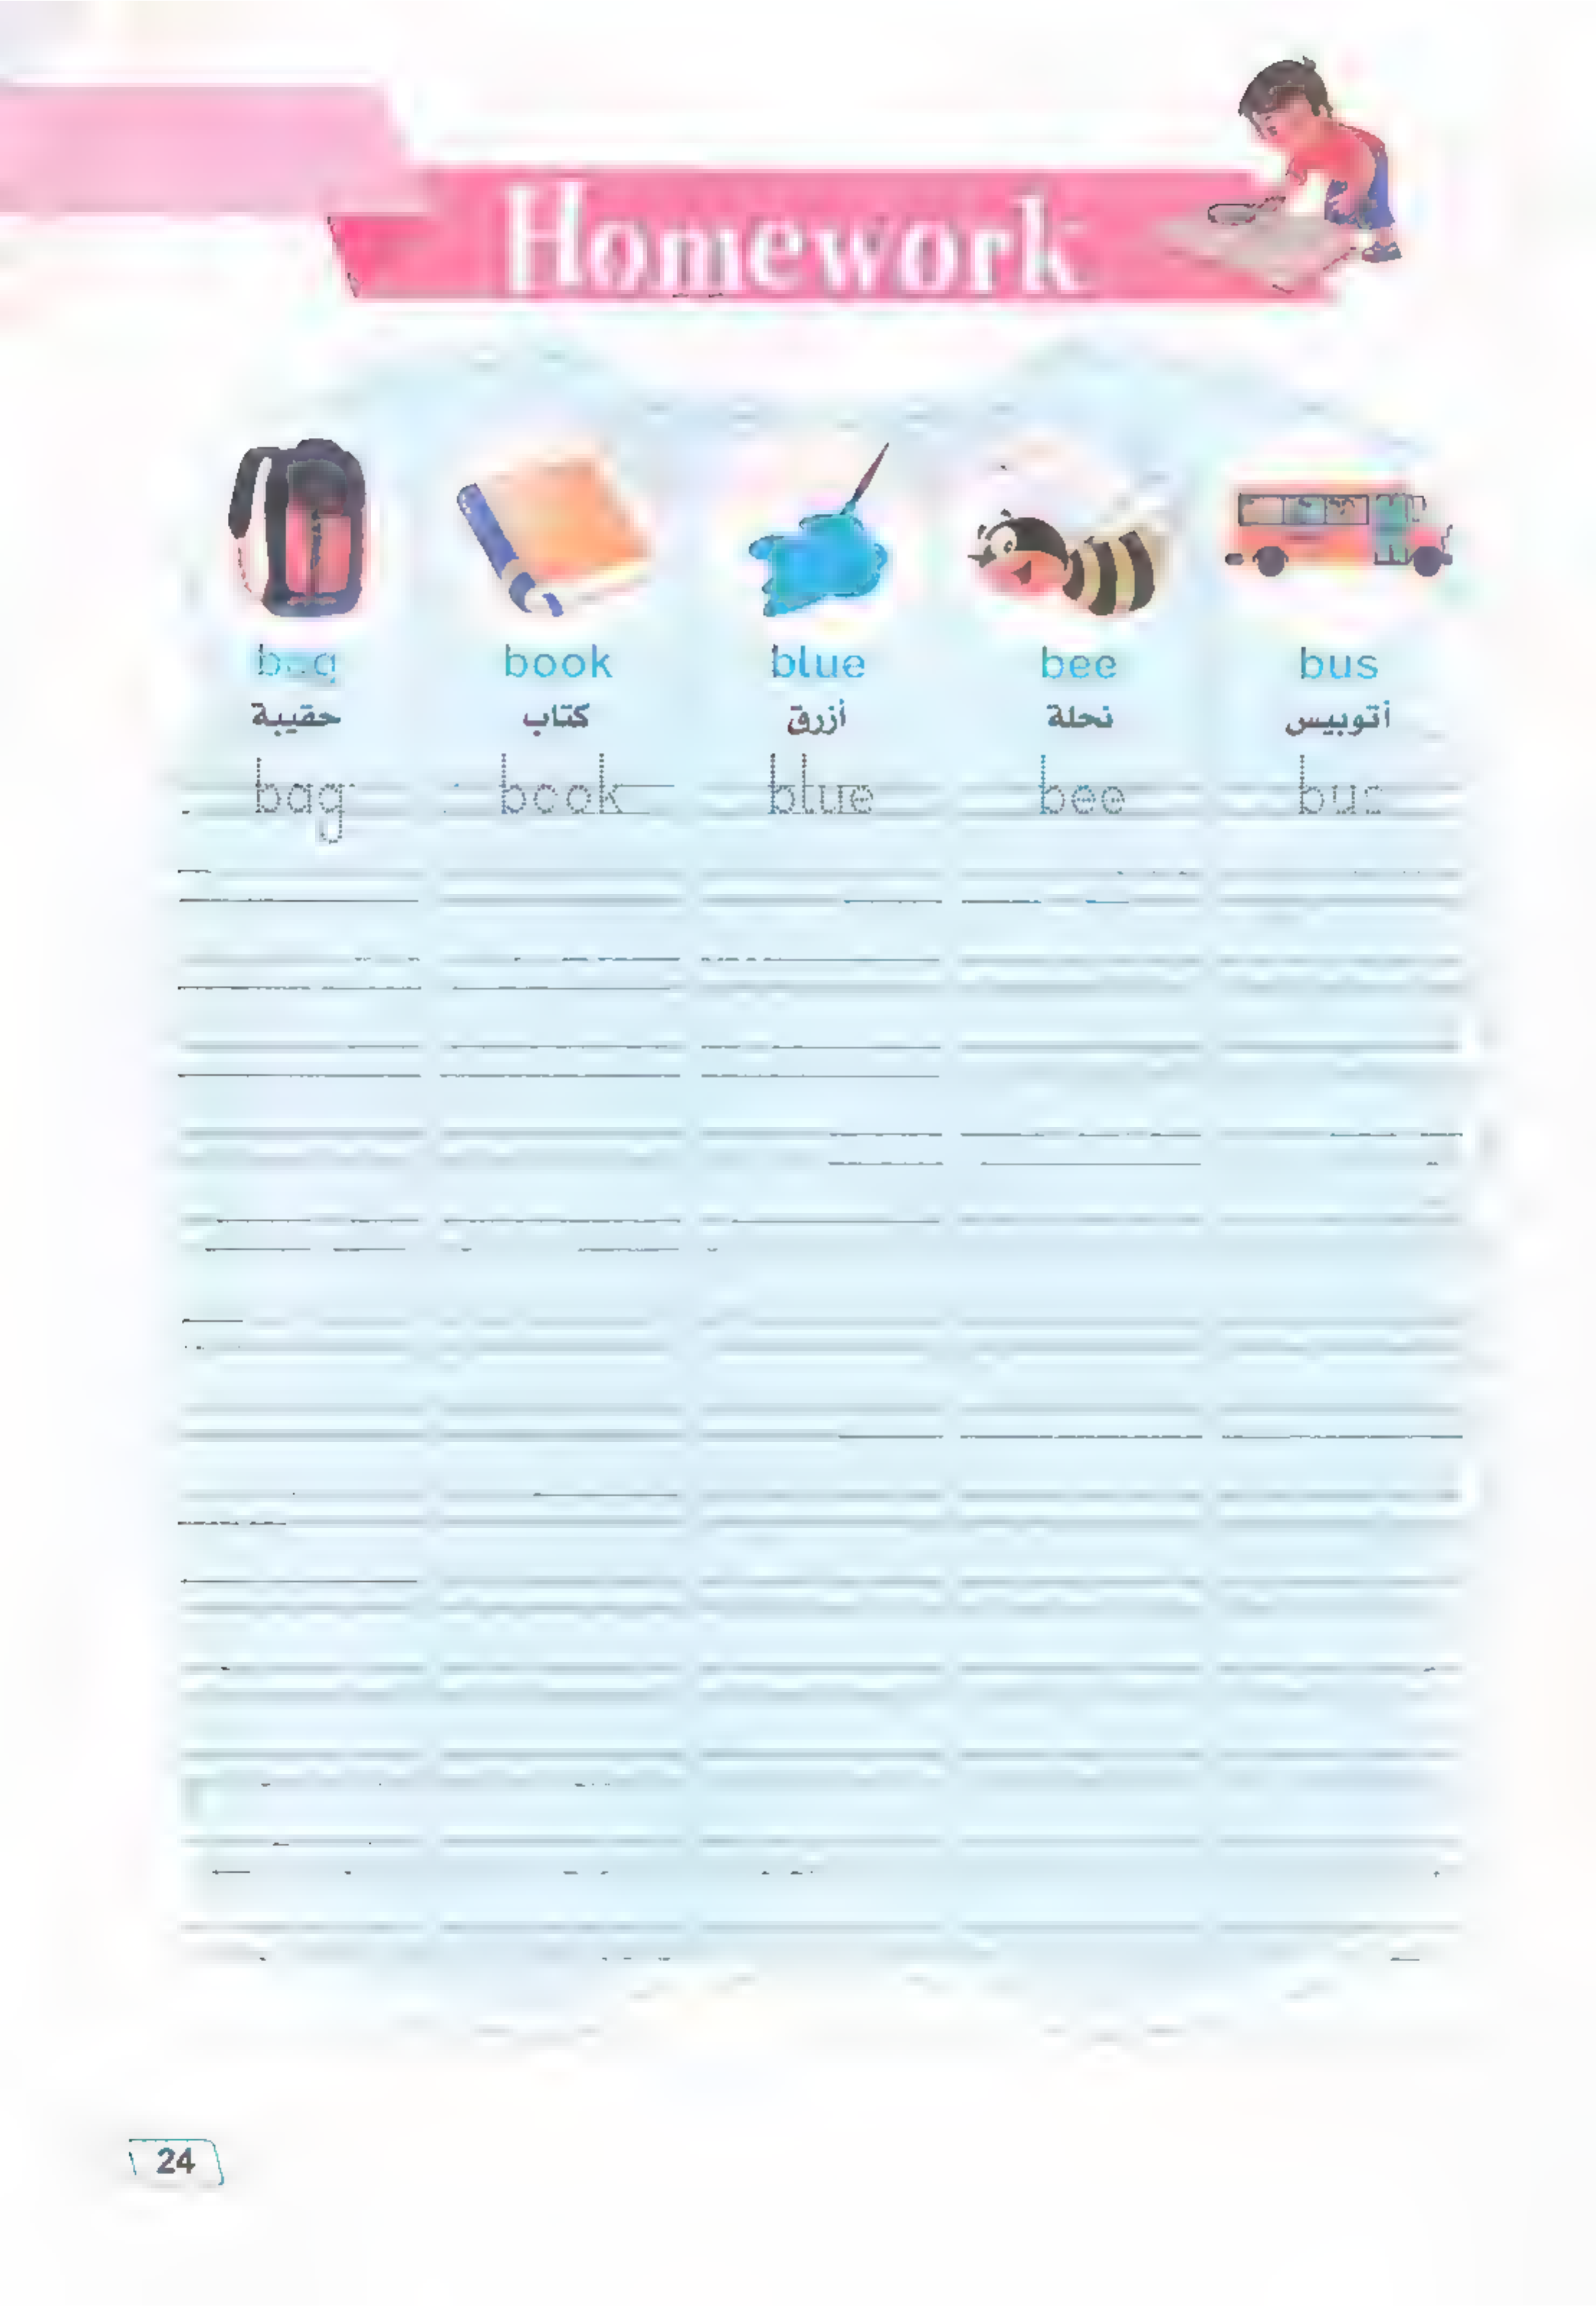 Homework
bag book blue bee bus
حقيبة كتاب أزرق نحلة أتوبيس
bag book blue bee bus
24